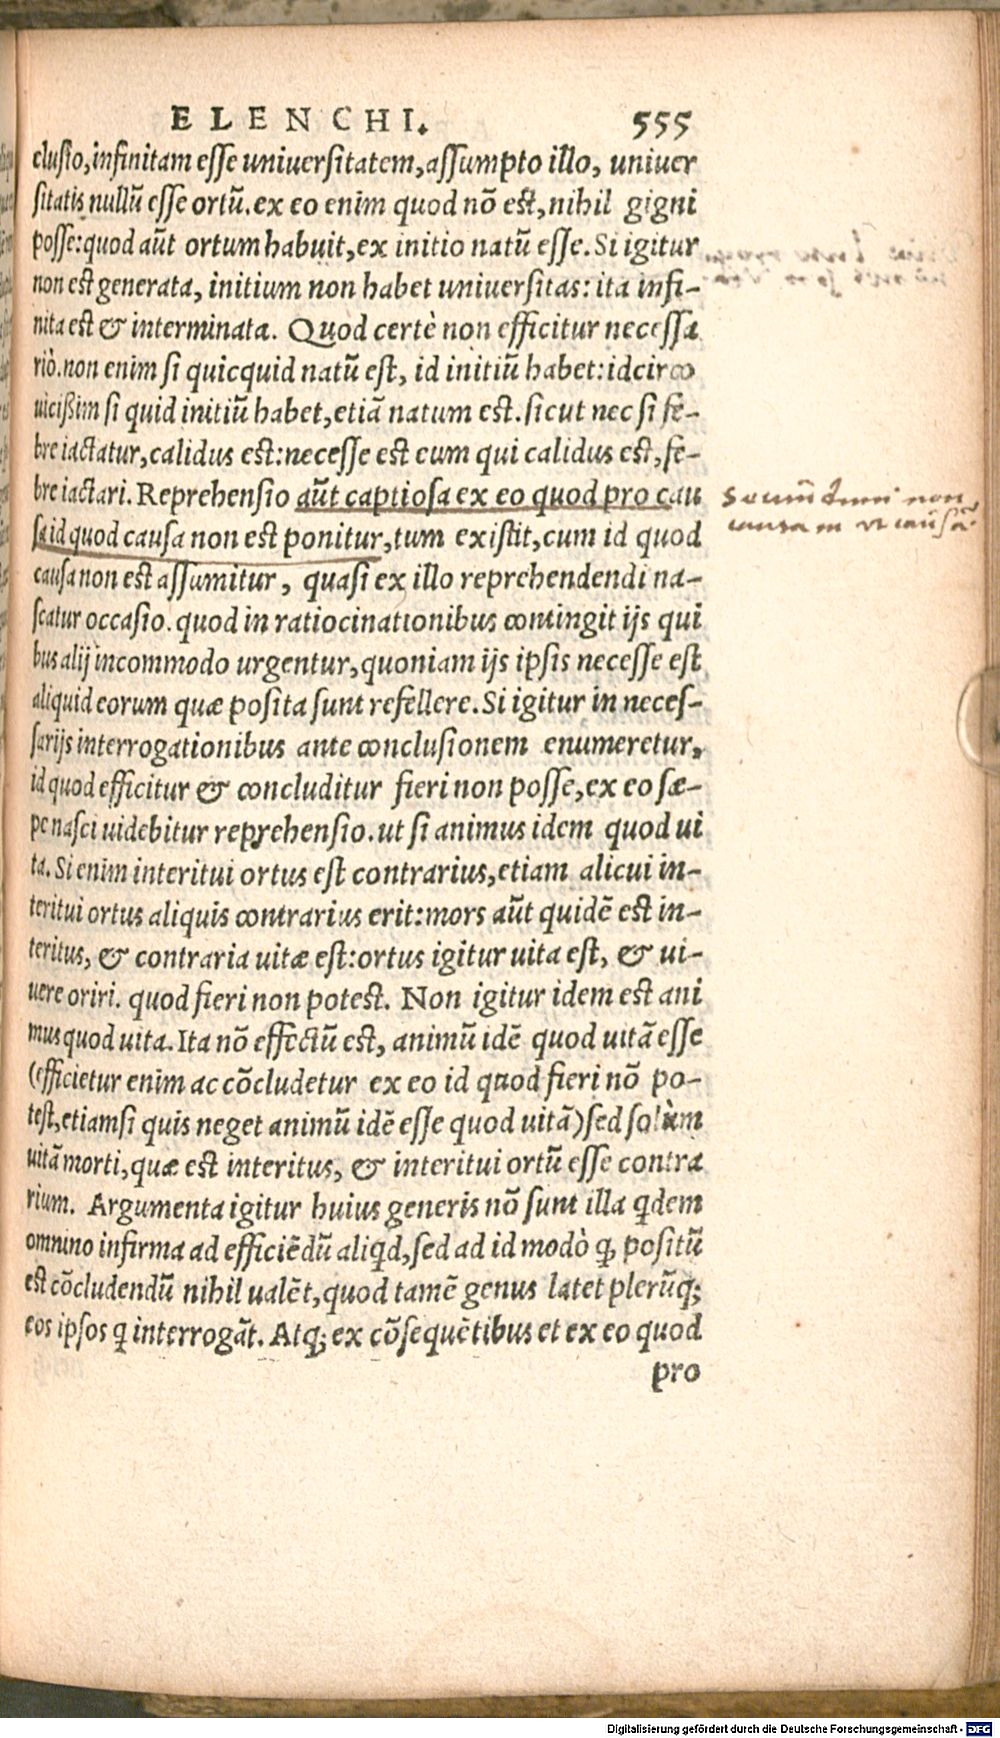 ELENCHI. 555
clusio, infinitam esse uniuersitatem, assumpto illo, uniuer
sitatis nullū esse ortū. ex eo enim quod nō est, nihil gigni
posse: quod aūt ortum habuit, ex initio natū esse. Si igitur
non est generata, initium non habet uniuersitas: ita infi-
nita est & interminata. Quod certè non efficitur necessa
riò. non enim si quicquid natū est, id initiū habet: idcirco
uicißim si quid initiū habet, etiā natum est. sicut nec si fe-
bre iactatur, calidus est: necesse est eum qui calidus est, fe-
bre iactari. Reprehensio aūt captiosa ex eo quod pro cau
sa id quod causa non est ponitur, tum existit, cum id quod
causa non est assumitur, quasi ex illo reprehendendi na-
scatur occasio. quod in ratiocinationibus contingit ijs qui
bus alij incommodo urgentur, quoniam ijs ipsis necesse est
aliquid eorum quæ posita sunt refellere. Si igitur in neces-
sarijs interrogationibus ante conclusionem enumeretur,
id quod efficitur & concluditur fieri non posse, ex eo sæ-
pe nasci uidebitur reprehensio. ut si animus idem quod ui
ta. Si enim interitui ortus est contrarius, etiam alicui in-
teritui ortus aliquis contrarius erit: mors aūt quidē est in-
teritus, & contraria uitæ est: ortus igitur uita est, & ui-
uere oriri. quod fieri non potest. Non igitur idem est ani
mus quod uita. Ita nō effectū est, animū idē quod uitā esse
(efficietur enim ac cōcludetur ex eo id quod fieri nō po-
test, etiamsi quis neget animū idē esse quod uitā) sed solùm
uitā morti, quæ est interitus, & interitui ortū esse contra
rium. Argumenta igitur huius generis nō sunt illa qdem
omnino infirma ad efficiēdū aliqd, sed ad id modò q, positū
est cōcludendū nihil ualēt, quod tamē genus latet plerūq;
eos ipsos q interrogāt. Atq; ex cōsequētibus et ex eo quod
pro
non
causam ut causā
Digitalisierung gefördert durch die Deutsche Forschungsgemeinschaft - DFG